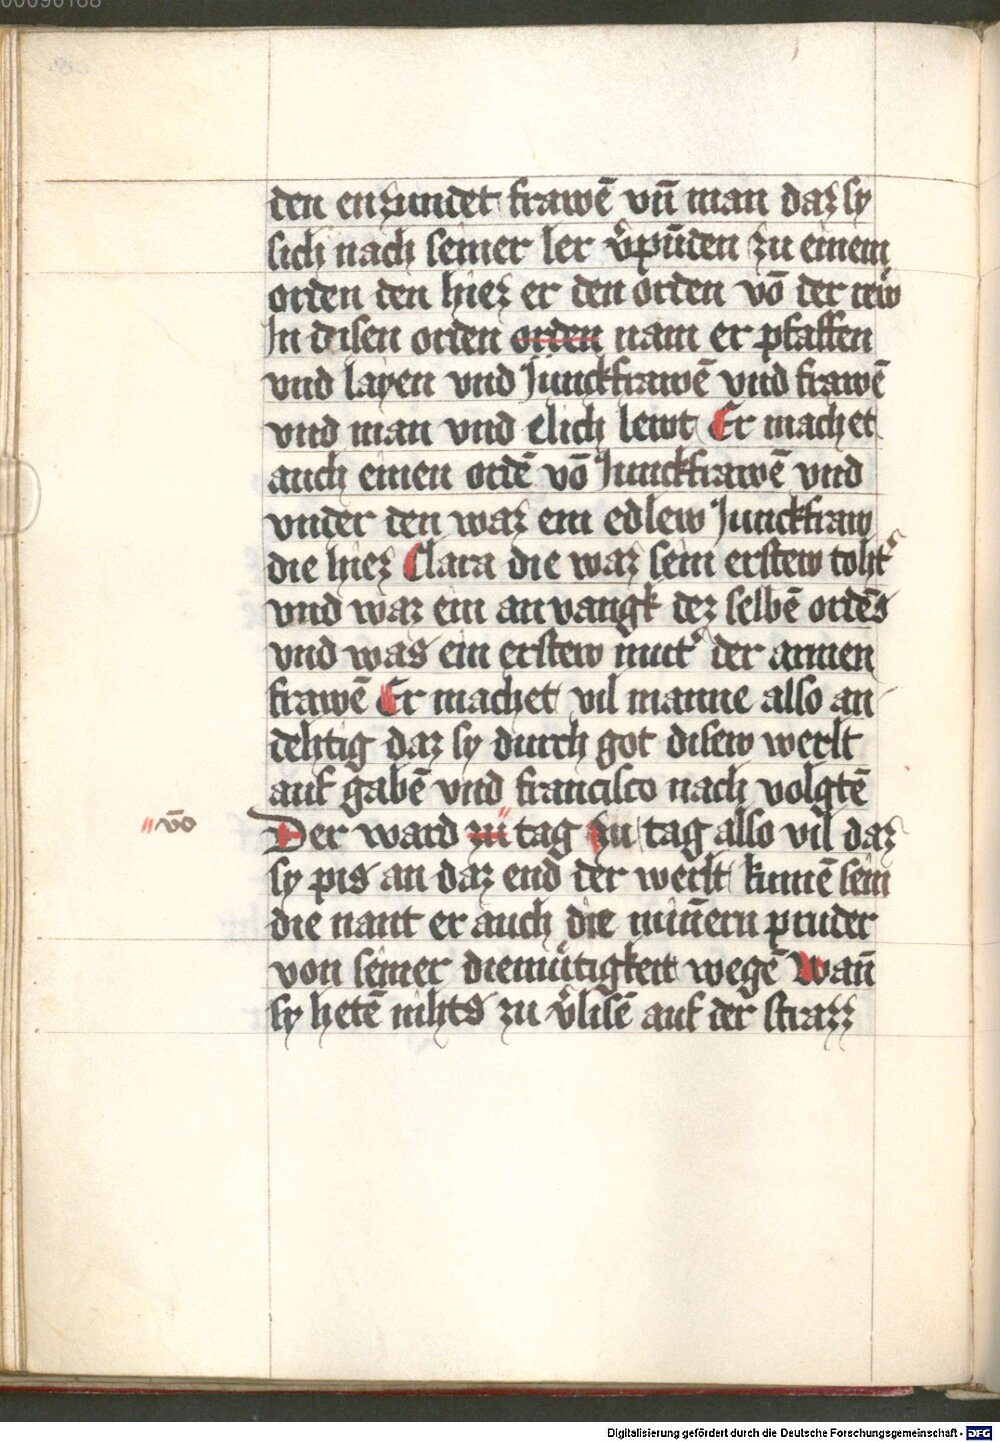 den enzundet frawē vn̄ man daz sy
sich nach seiner ler v̉pūden zu einem
orden den hiez er den orden vō der rew
In disen orden orden nam er pfaffen
vnd layen vnd Junckfrawē vnd frawē
vnd man vnd elich lewt Er machet
auch einen ordē vō Junckfrawē vnd
vnder den waz ein edlew Junckfraw
die hiez Clara die waz sein erstew toht̉
vnd waz ein anvangk dez selbē ordēs
vnd was ein erstew mut̉ der armen
frawē Er machet vil manne also an
dehtig daz sy durch got disew werlt
auf gabē vnd francisco nach volgtē
vō
Der ward zu tag zu tag also vil daz
sy pis an daz end der werlt kumē sein
die nant er auch die miñern pruder
von seiner diemütigkeit wegē Wañ
sy hetē nihts zu v̉lisē auf der strazz
Digitalisierung gefördert durch die Deutsche Forschungsgemeinschaft - DFG